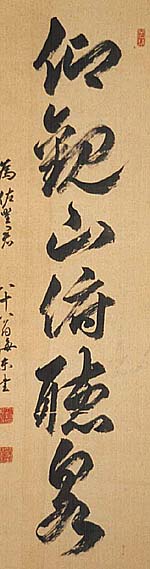 仰観山俯聴泉
為佐豊君
八十八翁